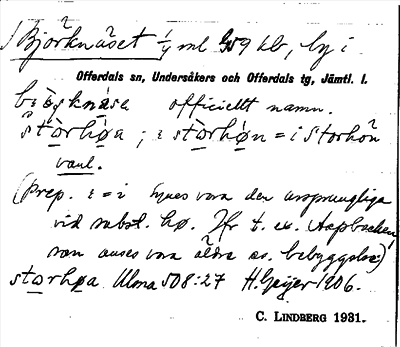 Björknäset 1/4 ml 959 kb, by i
Offerdals sn, Undersåkers och Offerdals tg, Jämtl. l.
officiellt namn.
storhøa ; ɪ storhøn = i Storhön
vanl.
(Prep. ɪ = i synes vara den ursprungliga
vid subst. hø. Jfr t. ex.
som anses vara äldre
storhøa Ulma 508:27 H. Geijer 1906.
C. LINDBERG 1931.